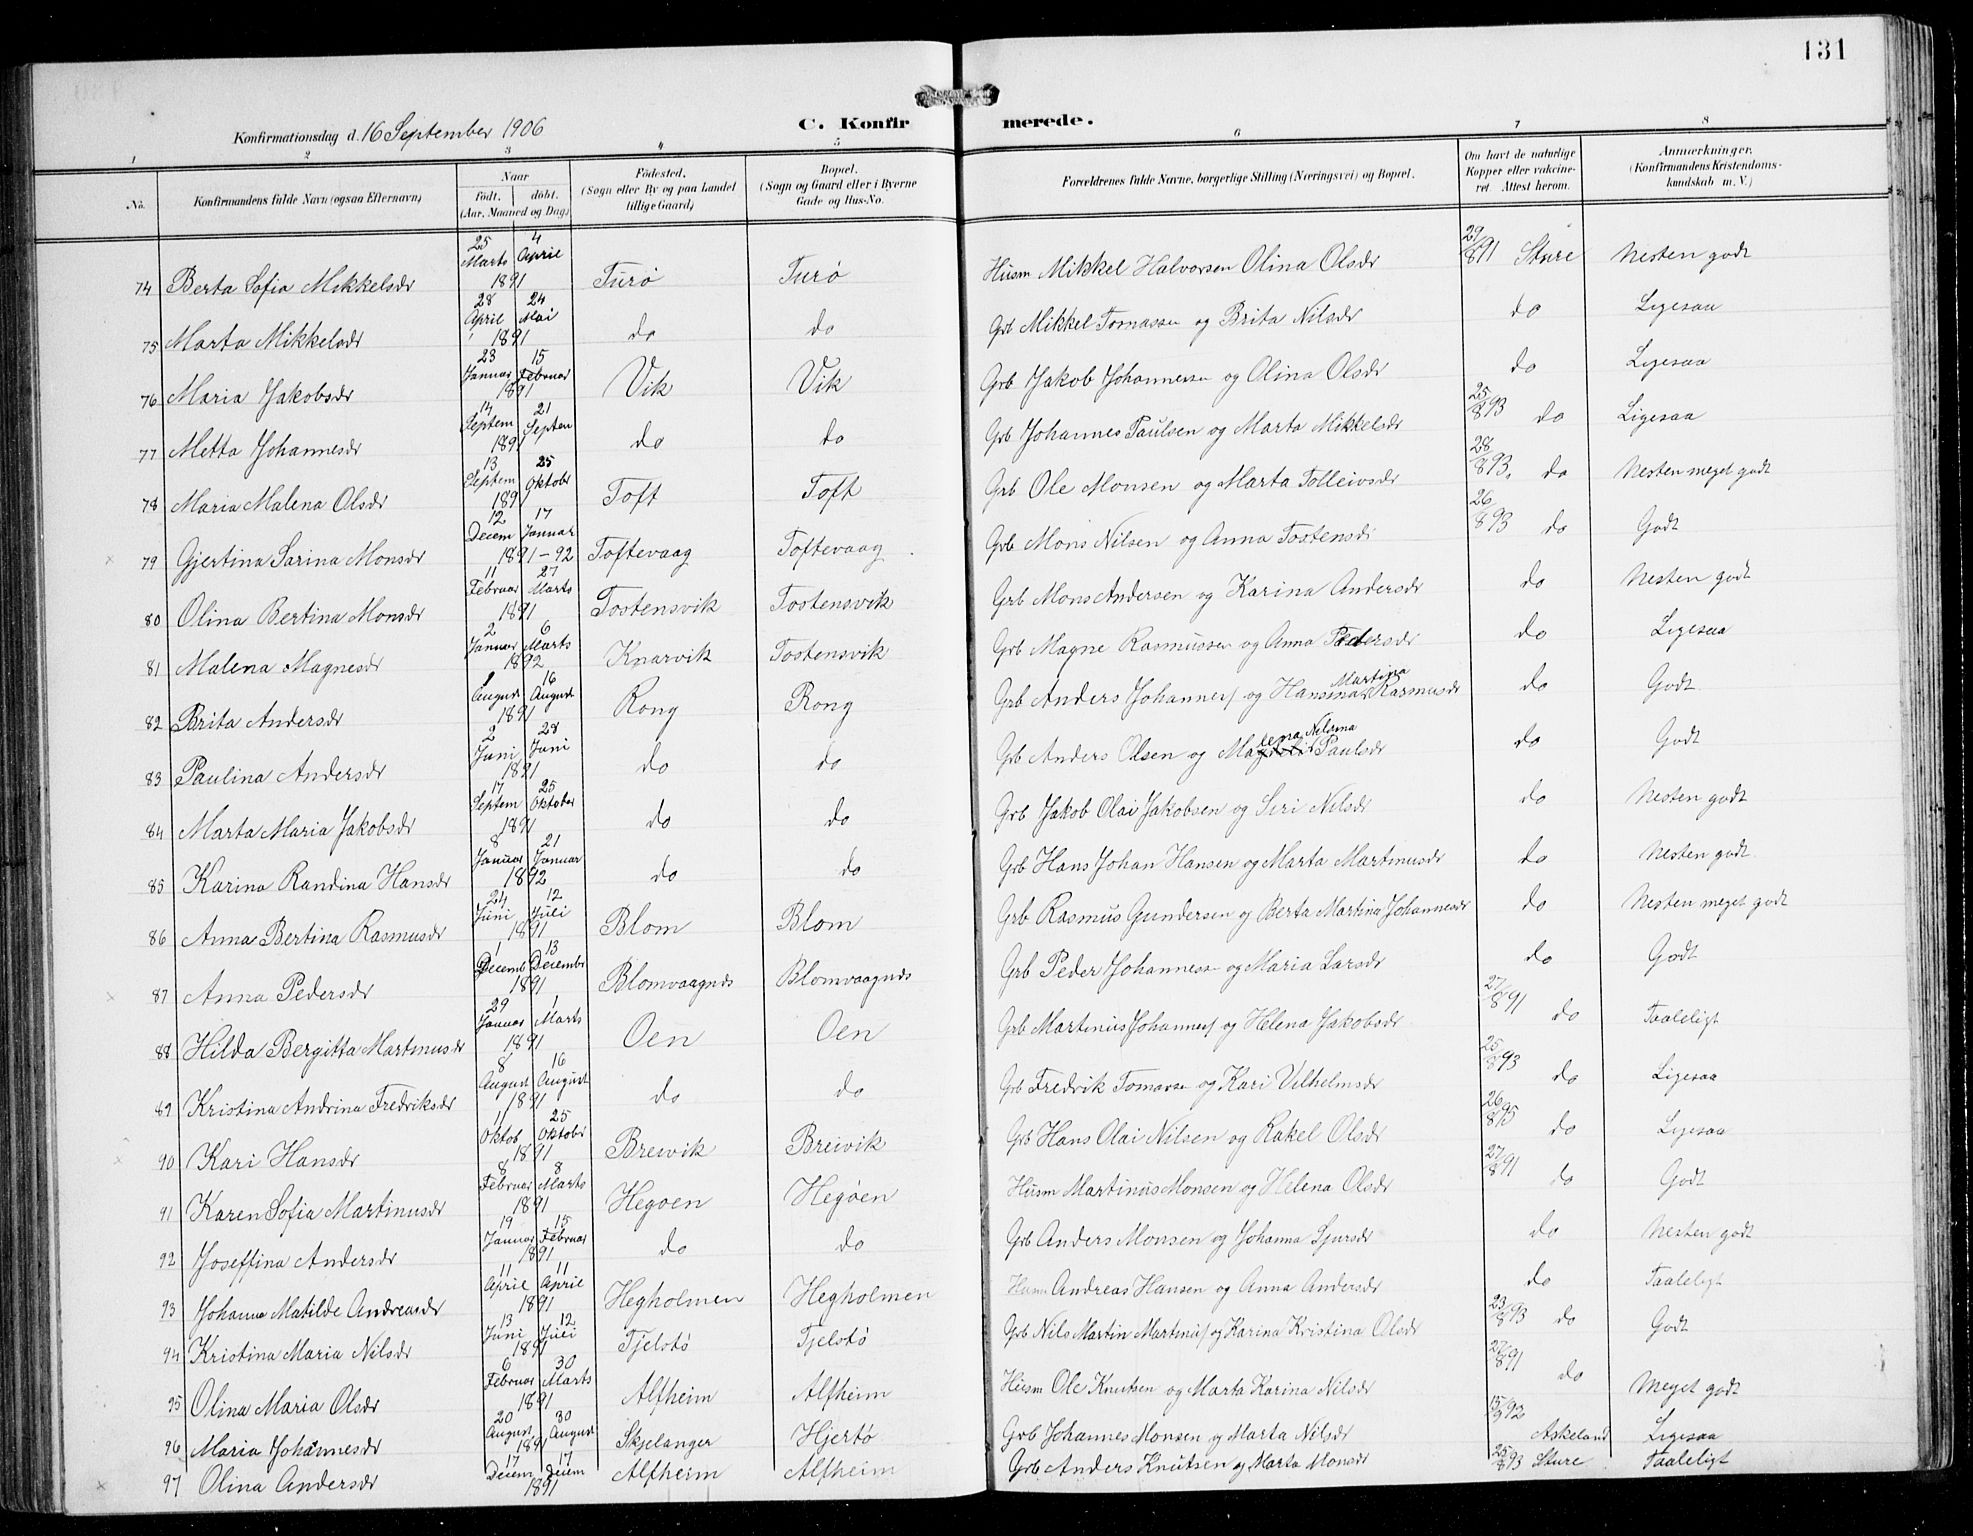 131
Konfirmationsdag d. 16 September 1906
C. Konfirmerede.
1 2 3 4 5 6 7 8
No. Konfirmandens fulde Navn (ogsaa Efternavn) Naar født. døbt. (Aar, Maaned og Dag) Fødested. (Sogn eller By og paa Landet tillige Gaard) Bopæl. (Sogn og Gaard eller i Byerne Gade og Hus-No. Forældrenes fulde Navne, borgerlige Stilling (Næringsvei) og Bopæl. Om havt de naturlige Kopper eller vakcineret. Attest herom. Anmærkninger. (Konfirmandens Kristendomskundskab m. V.)
74 Berta Sofia Mikkelsdr 25 Marts 4 April 1891 Turø Turø Husm Mikkel Halvorsen Olina Olsdr 29/8 91 Sture Nesten godt
75 Marta Mikkelsdr 28 April 24 Mai 1891 do do Grb Mikkel Tomassen og Brita Nilsdr do Ligesaa
76 Maria Jakobsdr 23 Januar 15 Februar 1891 Vik Vik Grb Jakob Johannessen og Olina Olsdr do Ligesaa
77 Metta Johannesdr 14 Septem 21 Septem 1891 do do Grb Johannes Paulsen og Marta Mikkelsdr 25/8 93 do Ligesaa
78 Maria Malena Olsdr 13 Septem 25 Oktobr 1891 Toft Toft Grb Ole Monsen og Marta Tolleivsdr 28/8 93. do Nesten meget godt
79 Gjertina Sarina Monsdr 12 Decem 17 Januar 1891-92 Toftevaag Toftevaag Grb Mons Nilsen og Anna Tostensd 26/8 93 do Godt
80 Olina Bertina Monsdr 11 Februar 27 Marts 1891 Tostensvik Tostensvik Grb Mons Andersen og Karina Andersdr do Nesten godt
81 Malena Magnesdr 2 Januar 6 Marts 1892 Knarvik Tostensvik Grb Magne Rasmussen og Anna Pedersdr do Ligesaa
82 Brita Andersdr August 16 August 1891 Rong Rong Grb Anders Johannes/ og Hansina Martina Rasmusdr do Godt
83 Paulina Andersdr 2 Juni 28 Juni 1891 do do Grb Anders Olsen og Magdalena Nilsina Paulsdr do Godt
84 Marta Maria Jakobsdr 17 Septem 25 Oktober 1891 do do Grb Jakob Olai Jakobsen og Siri Nilsdr do Nesten godt
85 Karina Randina Hansdr 8 Januar 21 Januar 1892 do do Grb Hans Johan Hansen og Marta Martinusdr do Nesten godt
86 Anna Bertina Rasmusdr 24 Juni 12 Juli 1891 Blom Blom Grb Rasmus Gundersen og Berta Martina Johannesdr do Nesten meget godt
87 Anna Pedersdr 1 Decemb 13 Decembr 1891 Blomvaagnds Blomvaagnds Grb Peder Johannessen og Maria Larsdr do Godt
88 Hilda Bergitta Martinusdr 29 Januar 1 Marts 1891 Oen Oen Grb Martinus Johannes/ og Helena Jakobsdr 27/8 91 do Taaleligt
89 Kristina Andrina Fredriksdr 8 August 16 August 1891 do do Grb Fredrik Tomassen og Kari Vilhelmsdr 25/8 93 do Ligesaa
90 Kari Hansdr 1 Oktob 25 Oktober 1891 Breivik Breivik Grb Hans Olai Nilsen og Rakel Olsdr 26/8 95 do Ligesaa
91 Karen Sofia Martinusdr 8 Februar 8 Marts 1891 Hegøen Hegøen Husm Martinus Monsen og Helena Olsdr 27/8 91 do Godt
92 Joseffina Andersdr 19 Januar 15 Februar 1891 do do Grb Anders Monsen og Johanna Sjursdr do Nesten godt
93 Johanna Matilde Andreasdr 11 April 11 April 1891 Hegholmen Hegholmen Husm Andreas Hansen og Anna Andersdr do Taaleligt
94 Kristina Maria Nilsdr 13 Juni 12 Juli 1891 Tjelstø Tjelstø Grb Nils Martin Martinus/ og Karina Kristina Olsdr 23/8 93 do Godt
95 Olina Maria Olsdr 6 Februar 30 Marts 1891 Alfheim Alfheim Husm Ole Knutsen og Marta Karina Nilsdr 27/8 91 do Meget godt
96 Maria Johannesdr 20 August 30 August 1891 Skjelanger Hjertø Grb Johannes Monsen og Marta Nilsdr 15/9 92 Askeland Ligesaa
97 Olina Andersdr 17 Decem 17 Decem 1891 Alfheim Alfheim Grb Anders Knutsen og Marta Monsdr 25/8 93 Sture Taaleligt